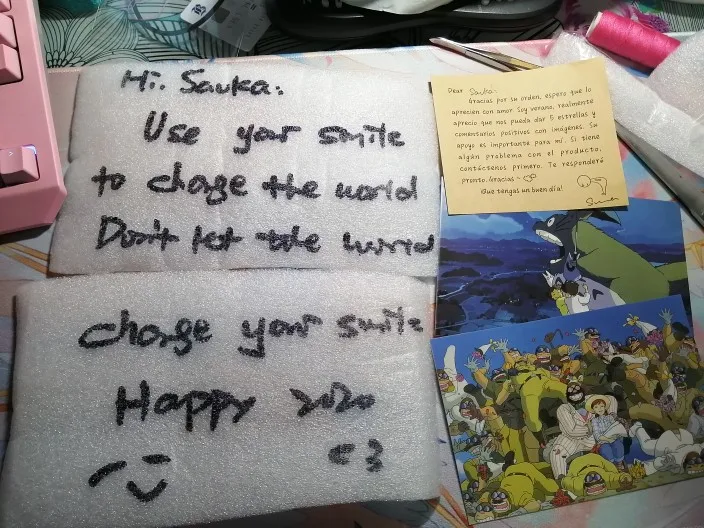 Hi. Sauka:
Use your smile
to change the world
Don't let the world
change your smile
Happy 2020
<3
Dear Sauka:
Gracias por su orden, espero que lo
aprecien con amor. Soy verano, realmente
aprecio que nos pueda dar 5 estrellas y
comentarios positivos con imágenes. Su
apoyo es importante para mí. Si tiene
algún problema con el producto,
contáctenos primero. Te responderé
pronto. Gracias~
Que tengas un buen día!